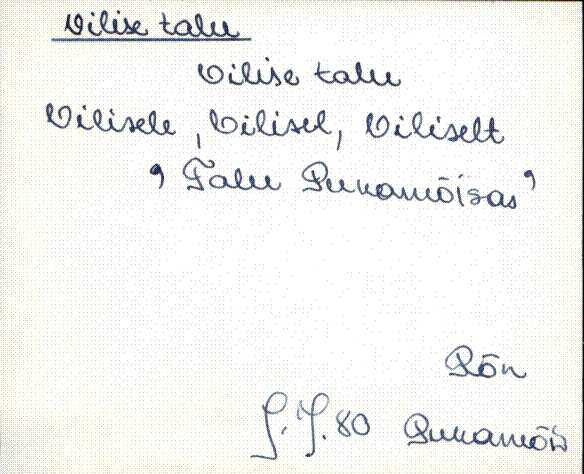 Vilise talu
Vilise talu
Vilisele, Vilisel, Viliselt
' Talu Punamõisas '
Rõn
80 Punamõis